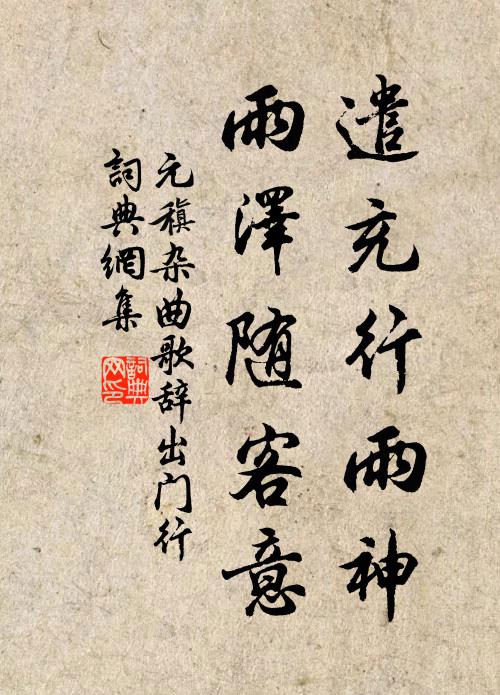 遣充行雨神
雨澤随客意
元稹杂曲歌辞出门行
詞典網集
詞典网印